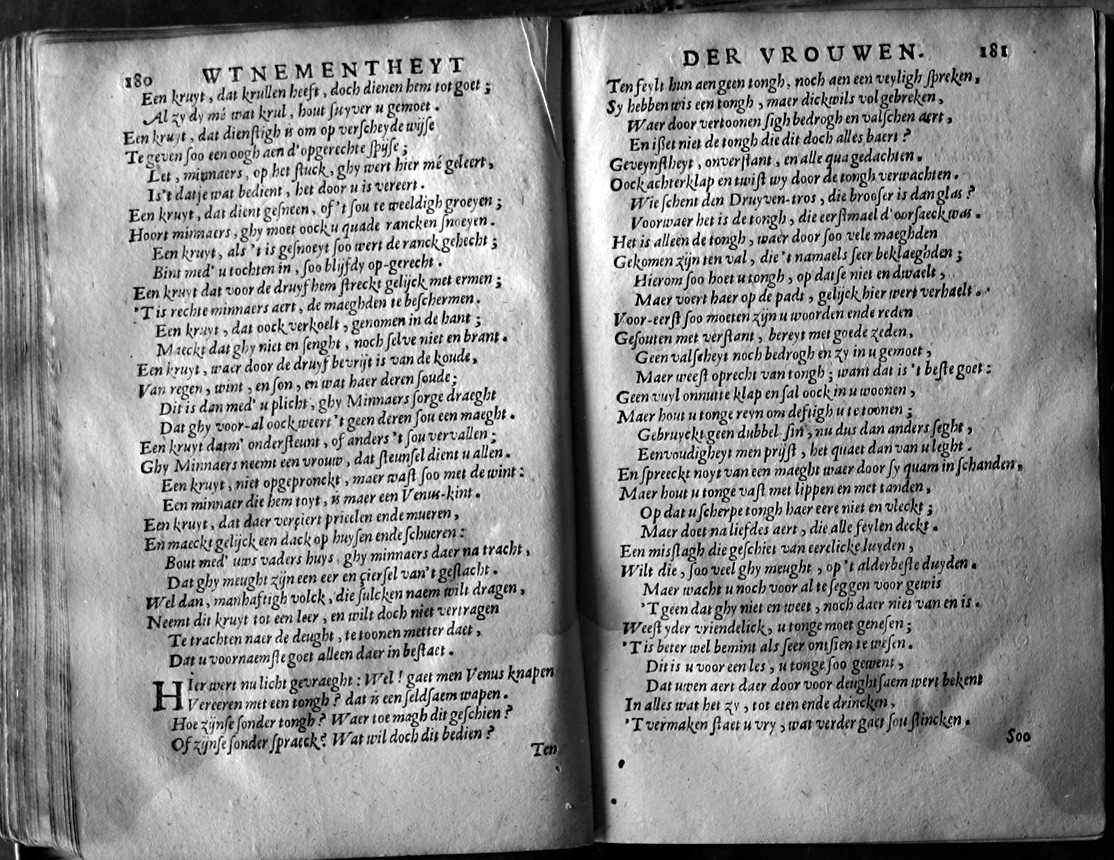 180 WTNEMENTHEYT
Een kruyt, dat krullen heeft, doch dienen hem tot goet;
Al zy dy mé wat krul, hout suyver u gemoet.
Een kruyt, dat dienstigh is om op verscheyde wijse
Te geven soo een oogh aen d'opgerechte spijse;
Let, minnaers, op het stuck, ghy wert hier mé geleert,
Is't datje wat bedient, het door u is vereert.
Een kruyt, dat dient gesneen, of 't sou te weeldigh groeyen;
Hoort minnaers, ghy moet oock u quade rancken snoeyen.
Een kruyt, als 't is gesnoeyt soo wert de ranck gehecht;
Bint med' u tochten in, soo blijfdy op-gerecht.
Een kruyt dat voor de druyf hem streckt gelijck met ermen;
'Tis rechte minnaers aert, de maeghden te beschermen.
Een kruyt, dat oock verkoelt, genomen in de hant;
Maeckt dat ghy niet en senght, noch selve niet en brant.
Een kruyt, waer door de druyf bevrijt is van de koude,
Van regen, wint, en son, en wat haer deren soude;
Dit is dan med' u plicht, ghy Minnaers sorge draeght
Dat ghy voor-al oock weert 't geen deren sou een maeght.
Een kruyt datm' ondersteunt, of anders 't sou vervallen;
Ghy Minnaers neemt een vrouw, dat steunsel dient u allen.
Een kruyt, niet opgepronckt, maer wast soo met de wint:
Een minnaer die hem toyt, is maer een Venus-kint.
Een kruyt, dat daer verçiert prieelen ende mueren,
En maeckt gelijck een dack op huysen ende schueren:
Bout med' uws vaders huys, ghy minnaers daer na tracht,
Dat ghy meught zijn een eer en çiersel van't geslacht.
Wel dan, manhaftigh volck, die sulcken naem wilt dragen,
Neemt dit kruyt tot een leer, en wilt doch niet vertragen
Te trachten naer de deught, te toonen metter daet,
Dat u voornaemste goet alleen daer in bestaet.
Hier wert nu licht gevraeght: Wel! gaet men Venus knapen
Vereeren met een tongh? dat is een seldsaem wapen.
Hoe zijnse sonder tongh? Waer toe magh dit geschien?
Of zijnse sonder spraeck? Wat wil doch dit bedien?
Ten
DER VROUWEN. 181
Ten feylt hun aen geen tongh, noch aen een veyligh spreken,
Sy hebben wis een tongh, maer dickwils vol gebreken,
Waer door vertoonen sigh bedrogh en valschen aert,
En isset niet de tongh die dit doch alles baert?
Geveynstheyt, onverstant, en alle qua gedachten.
Oock achterklap en twist wy door de tongh verwachten.
Wie schent den Druyven-tros, die brooser is dan glas?
Voorwaer het is de tongh, die eerstmael d'oorsaeck was.
Het is alleen de tongh, waer door soo vele maeghden
Gekomen zijn ten val, die 't namaels seer beklaeghden;
Hierom soo hoet u tongh, op datse niet en dwaelt,
Maer voert haer op de padt, gelijck hier wert verhaelt.
Voor-eerst soo moeten zijn u woorden ende reden
Gesouten met verstant, bereyt met goede zeden,
Geen valscheyt noch bedrogh en zy in u gemoet,
Maer weest oprecht van tongh; want dat is 't beste goet:
Geen vuyl onnutte klap en sal oock in u woonen,
Maer hout u tonge reyn om deftigh u te toonen;
Gebruyckt geen dubbel sin, nu dus dan anders seght,
Eenvoudigheyt men prijst, het quaet dan van u leght.
En spreeckt noyt van een maeght waer door sy quam in schanden,
Maer hout u tonge vast met lippen en met tanden,
Op dat u scherpe tongh haer eere niet en vleckt;
Maer doet na liefdes aert, die alle feylen deckt.
Een misslagh die geschiet van eerelicke luyden,
Wilt die, soo veel ghy meught, op 't alderbeste duyden.
Maer wacht u noch voor al te seggen voor gewis
'Tgeen dat ghy niet en weet, noch daer niet van en is.
Weest yder vriendelick, u tonge moet genesen;
'Tis beter wel bemint als seer ontsien te wesen.
Dit is u voor een les, u tonge soo gewent,
Dat uwen aert daer door voor deughtsaem wert bekent
In alles wat het zy, tot eten ende drincken,
'Tvermaken staet u vry, wat verder gaet sou stincken.
Soo